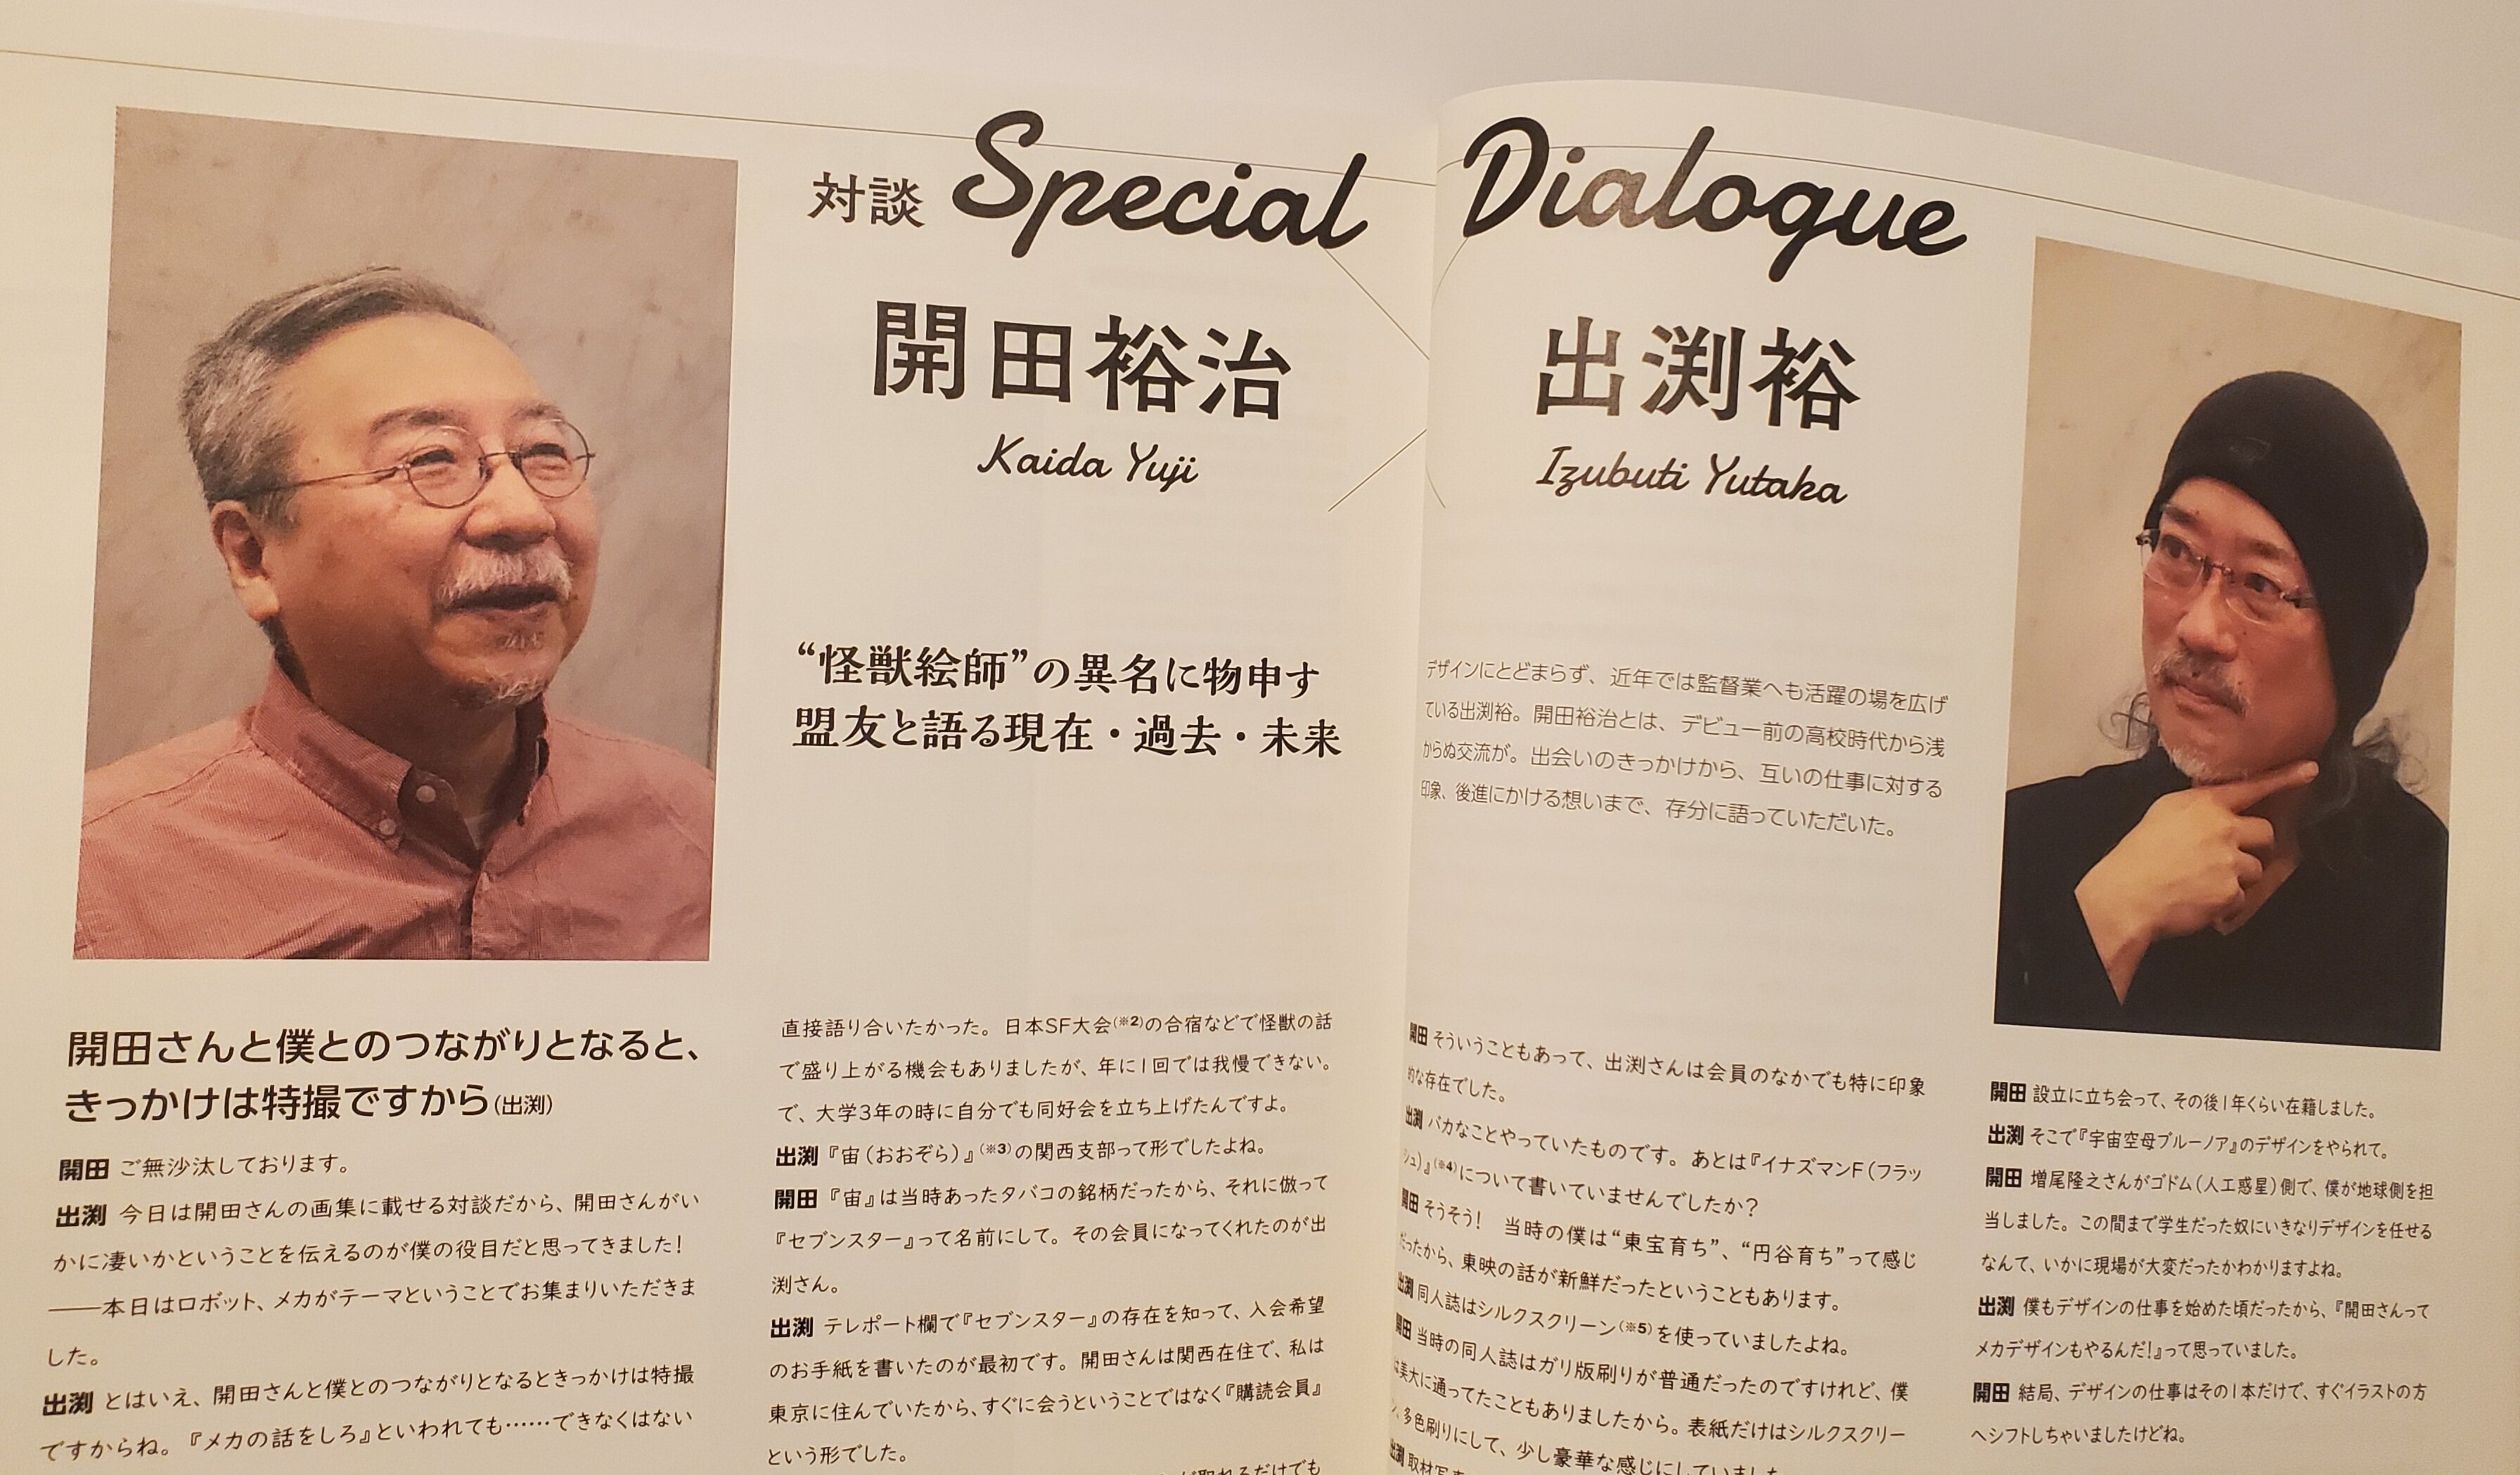 対談 Special Dialogue
開田裕治
Kaida Yuji
出渕裕
Izubuti Yutaka
“怪獣絵師”の異名に物申す
盟友と語る現在・過去・未来
デザインにとどまらず、近年では監督業へも活躍の場を広げ
ている出渕裕。開田裕治とは、デビュー前の高校時代から浅
からぬ交流が。出会いのきっかけから、互いの仕事に対する
印象、後進にかける想いまで、存分に語っていただいた。
開田さんと僕とのつながりとなると、
きっかけは特撮ですから(出渕)
開田 ご無沙汰しております。
出渕 今日は開田さんの画集に載せる対談だから、開田さんがい
かに凄いかということを伝えるのが僕の役目だと思ってきました!
――本日はロボット、メカがテーマということでお集まりいただきま
した。
出渕 とはいえ、開田さんと僕とのつながりとなるときっかけは特撮
ですからね。『メカの話をしろ』といわれても……できなくはない
直接語り合いたかった。日本SF大会(※2)の合宿などで怪獣の話
で盛り上がる機会もありましたが、年に1回では我慢できない。
で、大学3年の時に自分でも同好会を立ち上げたんですよ。
出渕 『宙(おおぞら)』(※3)の関西支部って形でしたよね。
開田 『宙』は当時あったタバコの銘柄だったから、それに倣って
『セブンスター』って名前にして。その会員になってくれたのが出
渕さん。
出渕 テレポート欄で『セブンスター』の存在を知って、入会希望
のお手紙を書いたのが最初です。開田さんは関西在住で、私は
東京に住んでいたから、すぐに会うということではなく『購読会員』
という形でした。
が取れるだけでも
開田 そういうこともあって、出渕さんは会員のなかでも特に印象
的な存在でした。
出渕 バカなことやっていたものです。あとは『イナズマンF(フラッ
シュ)』(※4)について書いていませんでしたか?
開田 そうそう! 当時の僕は“東宝育ち”、“円谷育ち”って感じ
だったから、東映の話が新鮮だったということもあります。
出渕 同人誌はシルクスクリーン(※5)を使っていましたよね。
開田 当時の同人誌はガリ版刷りが普通だったのですけれど、僕
は美大に通ってたこともありましたから。表紙だけはシルクスクリー
ン、多色刷りにして、少し豪華な感じにしていました
出渕 取材写
開田 設立に立ち会って、その後1年くらい在籍しました。
出渕 そこで『宇宙空母ブルーノア』のデザインをやられて。
開田 増尾隆之さんがゴドム(人工惑星)側で、僕が地球側を担
当しました。この間まで学生だった奴にいきなりデザインを任せる
なんて、いかに現場が大変だったかわかりますよね。
出渕 僕もデザインの仕事を始めた頃だったから、『開田さんって
メカデザインもやるんだ!』って思っていました。
開田 結局、デザインの仕事はその1本だけで、すぐイラストの方
へシフトしちゃいましたけどね。